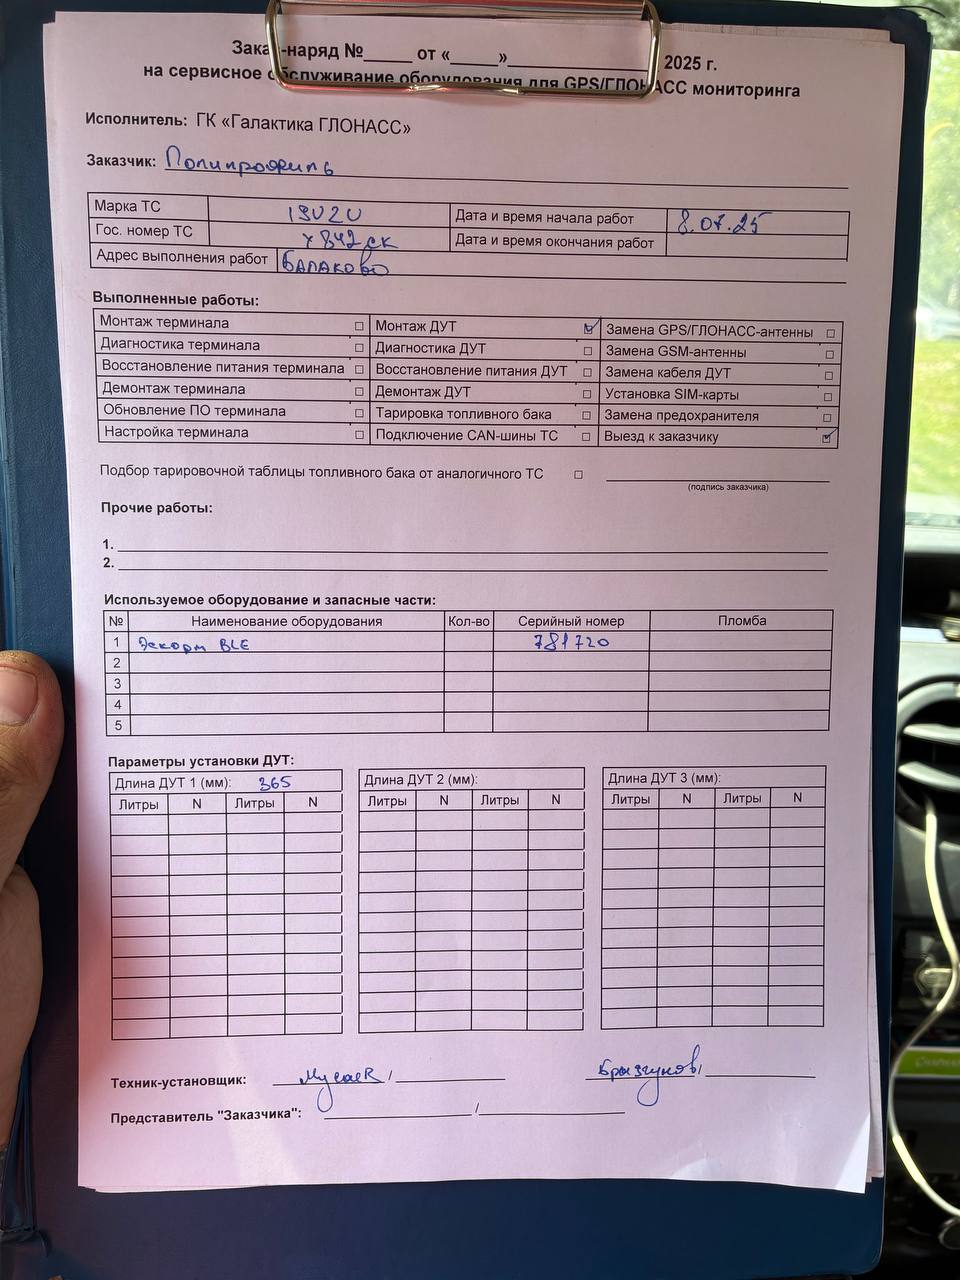 Заказ-наряд №_____ от «_____»________________ 2025 г.
на сервисное обслуживание оборудования для GPS/ГЛОНАСС мониторинга
Исполнитель: ГК «Галактика ГЛОНАСС»
Заказчик: Полипрофиль
Марка ТС ISUZU Дата и время начала работ 8.07.25
Гос. номер ТС х842ск Дата и время окончания работ
Адрес выполнения работ БАЛАКОВО
Выполненные работы:
Монтаж терминала □ Монтаж ДУТ ☑ Замена GPS/ГЛОНАСС-антенны □
Диагностика терминала □ Диагностика ДУТ □ Замена GSM-антенны □
Восстановление питания терминала □ Восстановление питания ДУТ □ Замена кабеля ДУТ □
Демонтаж терминала □ Демонтаж ДУТ □ Установка SIM-карты □
Обновление ПО терминала □ Тарировка топливного бака □ Замена предохранителя □
Настройка терминала □ Подключение CAN-шины ТС □ Выезд к заказчику ☑
Подбор тарировочной таблицы топливного бака от аналогичного ТС □
(подпись заказчика)
Прочие работы:
1.
2.
Используемое оборудование и запасные части:
№ Наименование оборудования Кол-во Серийный номер Пломба
1 Эскорт BLE 781720
2
3
4
5
Параметры установки ДУТ:
Длина ДУТ 1 (мм): 365 Длина ДУТ 2 (мм): Длина ДУТ 3 (мм):
Литры N Литры N Литры N Литры N Литры N Литры N
Техник-установщик: / Брызгунов/
Представитель "Заказчика": /